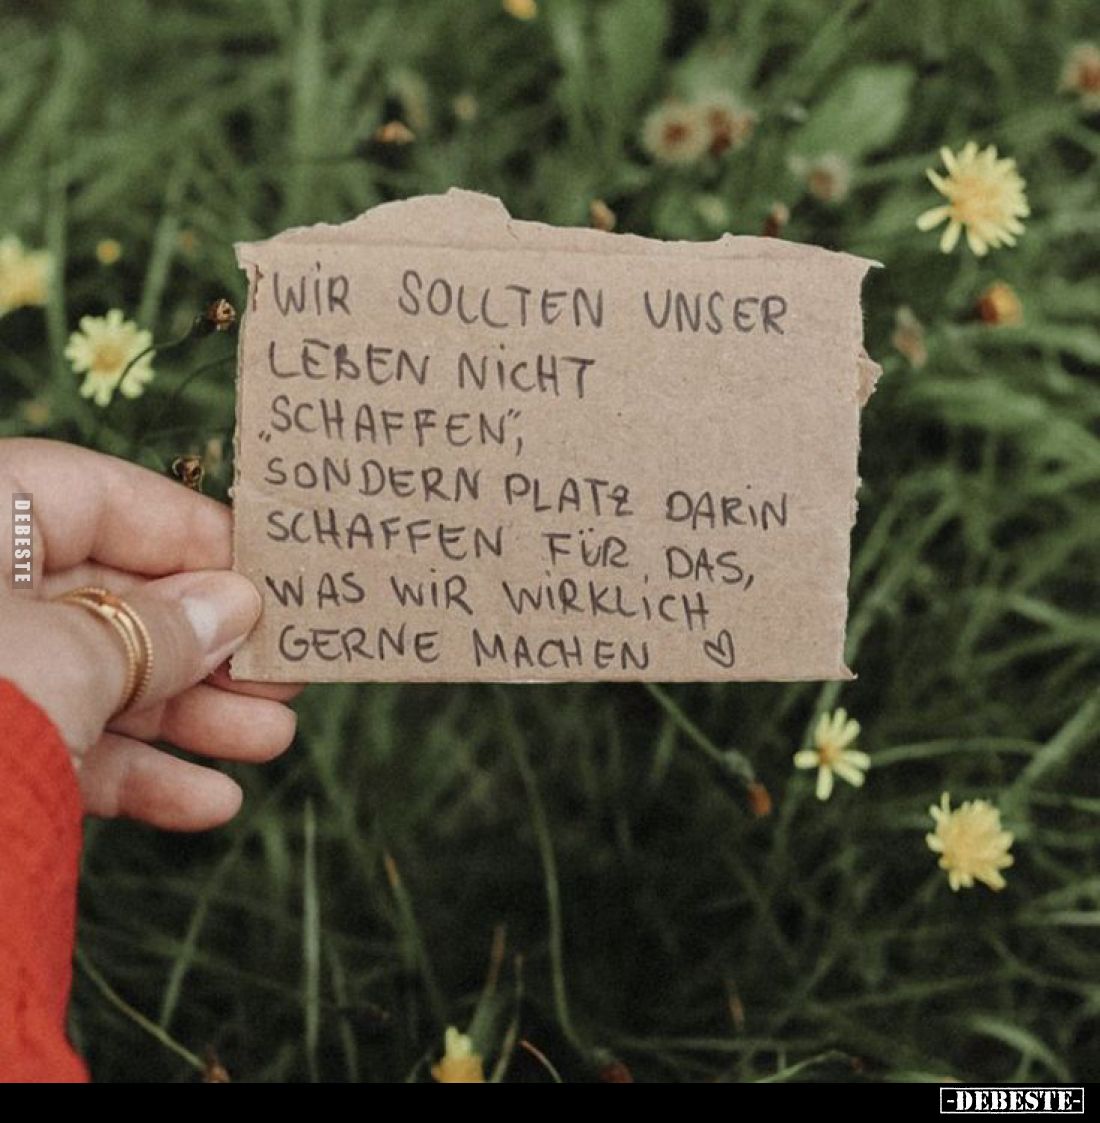 WIR SOLLTEN UNSER
LEBEN NICHT
„SCHAFFEN“,
SONDERN PLATZ DARIN
SCHAFFEN FÜR DAS,
WAS WIR WIRKLICH
GERNE MACHEN ♡
DEBESTE
-DEBESTE-